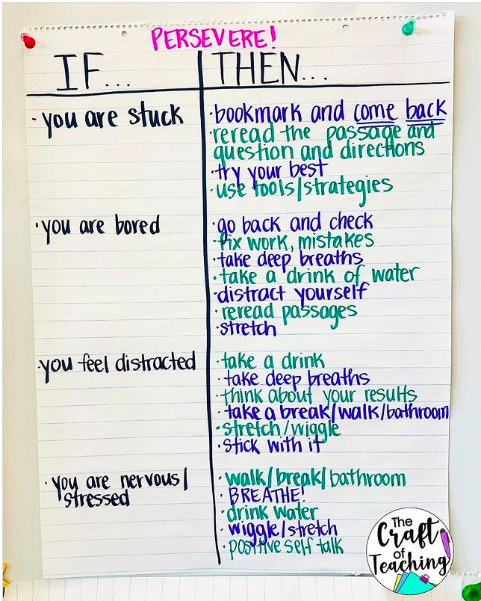 PERSEVERE!
IF... THEN...
· you are stuck
· bookmark and come back
· reread the passage and
question and directions
· try your best
· use tools/strategies
· you are bored
· go back and check
· fix work, mistakes
· take deep breaths
· take a drink of water
· distract yourself
· reread passages
· stretch
· you feel distracted
· take a drink
· take deep breaths
· think about your results
· take a break/walk/bathroom
· stretch/wiggle
· stick with it
· you are nervous/
stressed
· walk/break/bathroom
· BREATHE!
· drink water
· wiggle/stretch
· positive self talk
The
Craft
of
Teaching